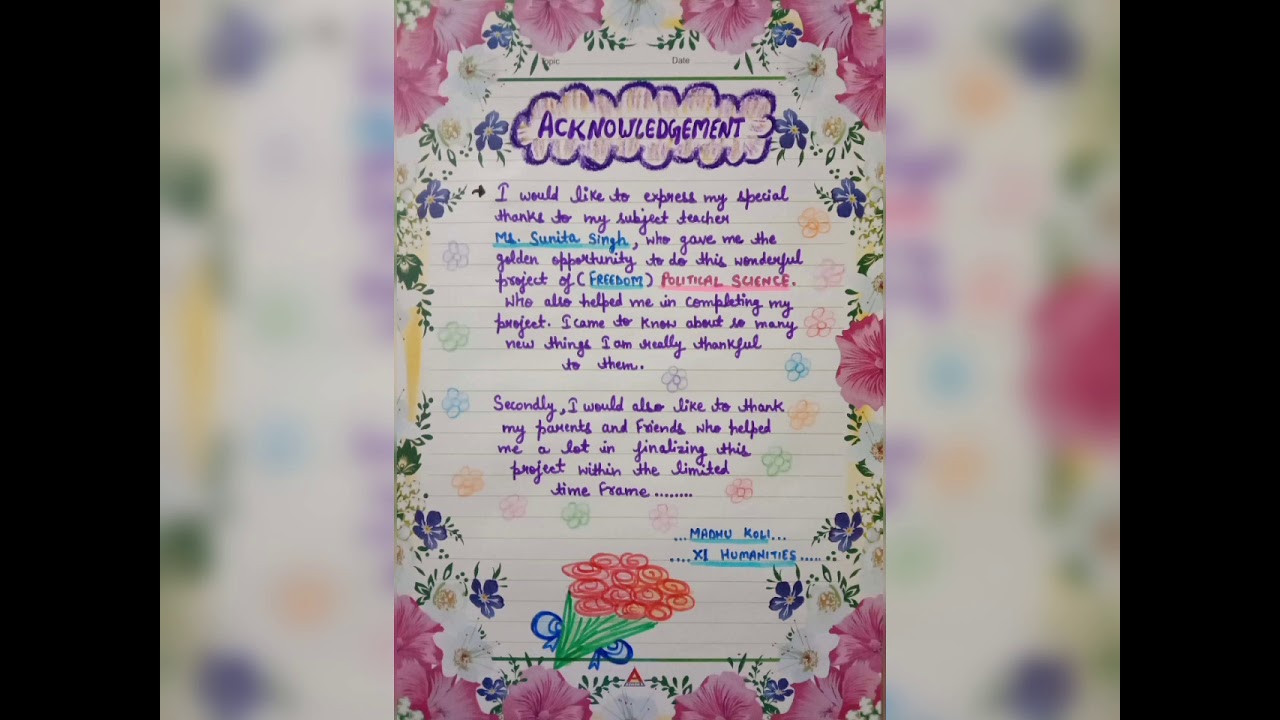 Topic Date
ACKNOWLEDGEMENT
I would like to express my special
thanks to my subject teacher
Ms. Sunita Singh, who gave me the
golden opportunity to do this wonderful
project of (FREEDOM) POLITICAL SCIENCE.
Who also helped me in completing my
project. I came to know about so many
new things I am really thankful
to them.
Secondly, I would also like to thank
my parents and Friends who helped
me a lot in finalizing this
project within the limited
time Frame........
...MADHU KOLI...
....XI HUMANITIES.....